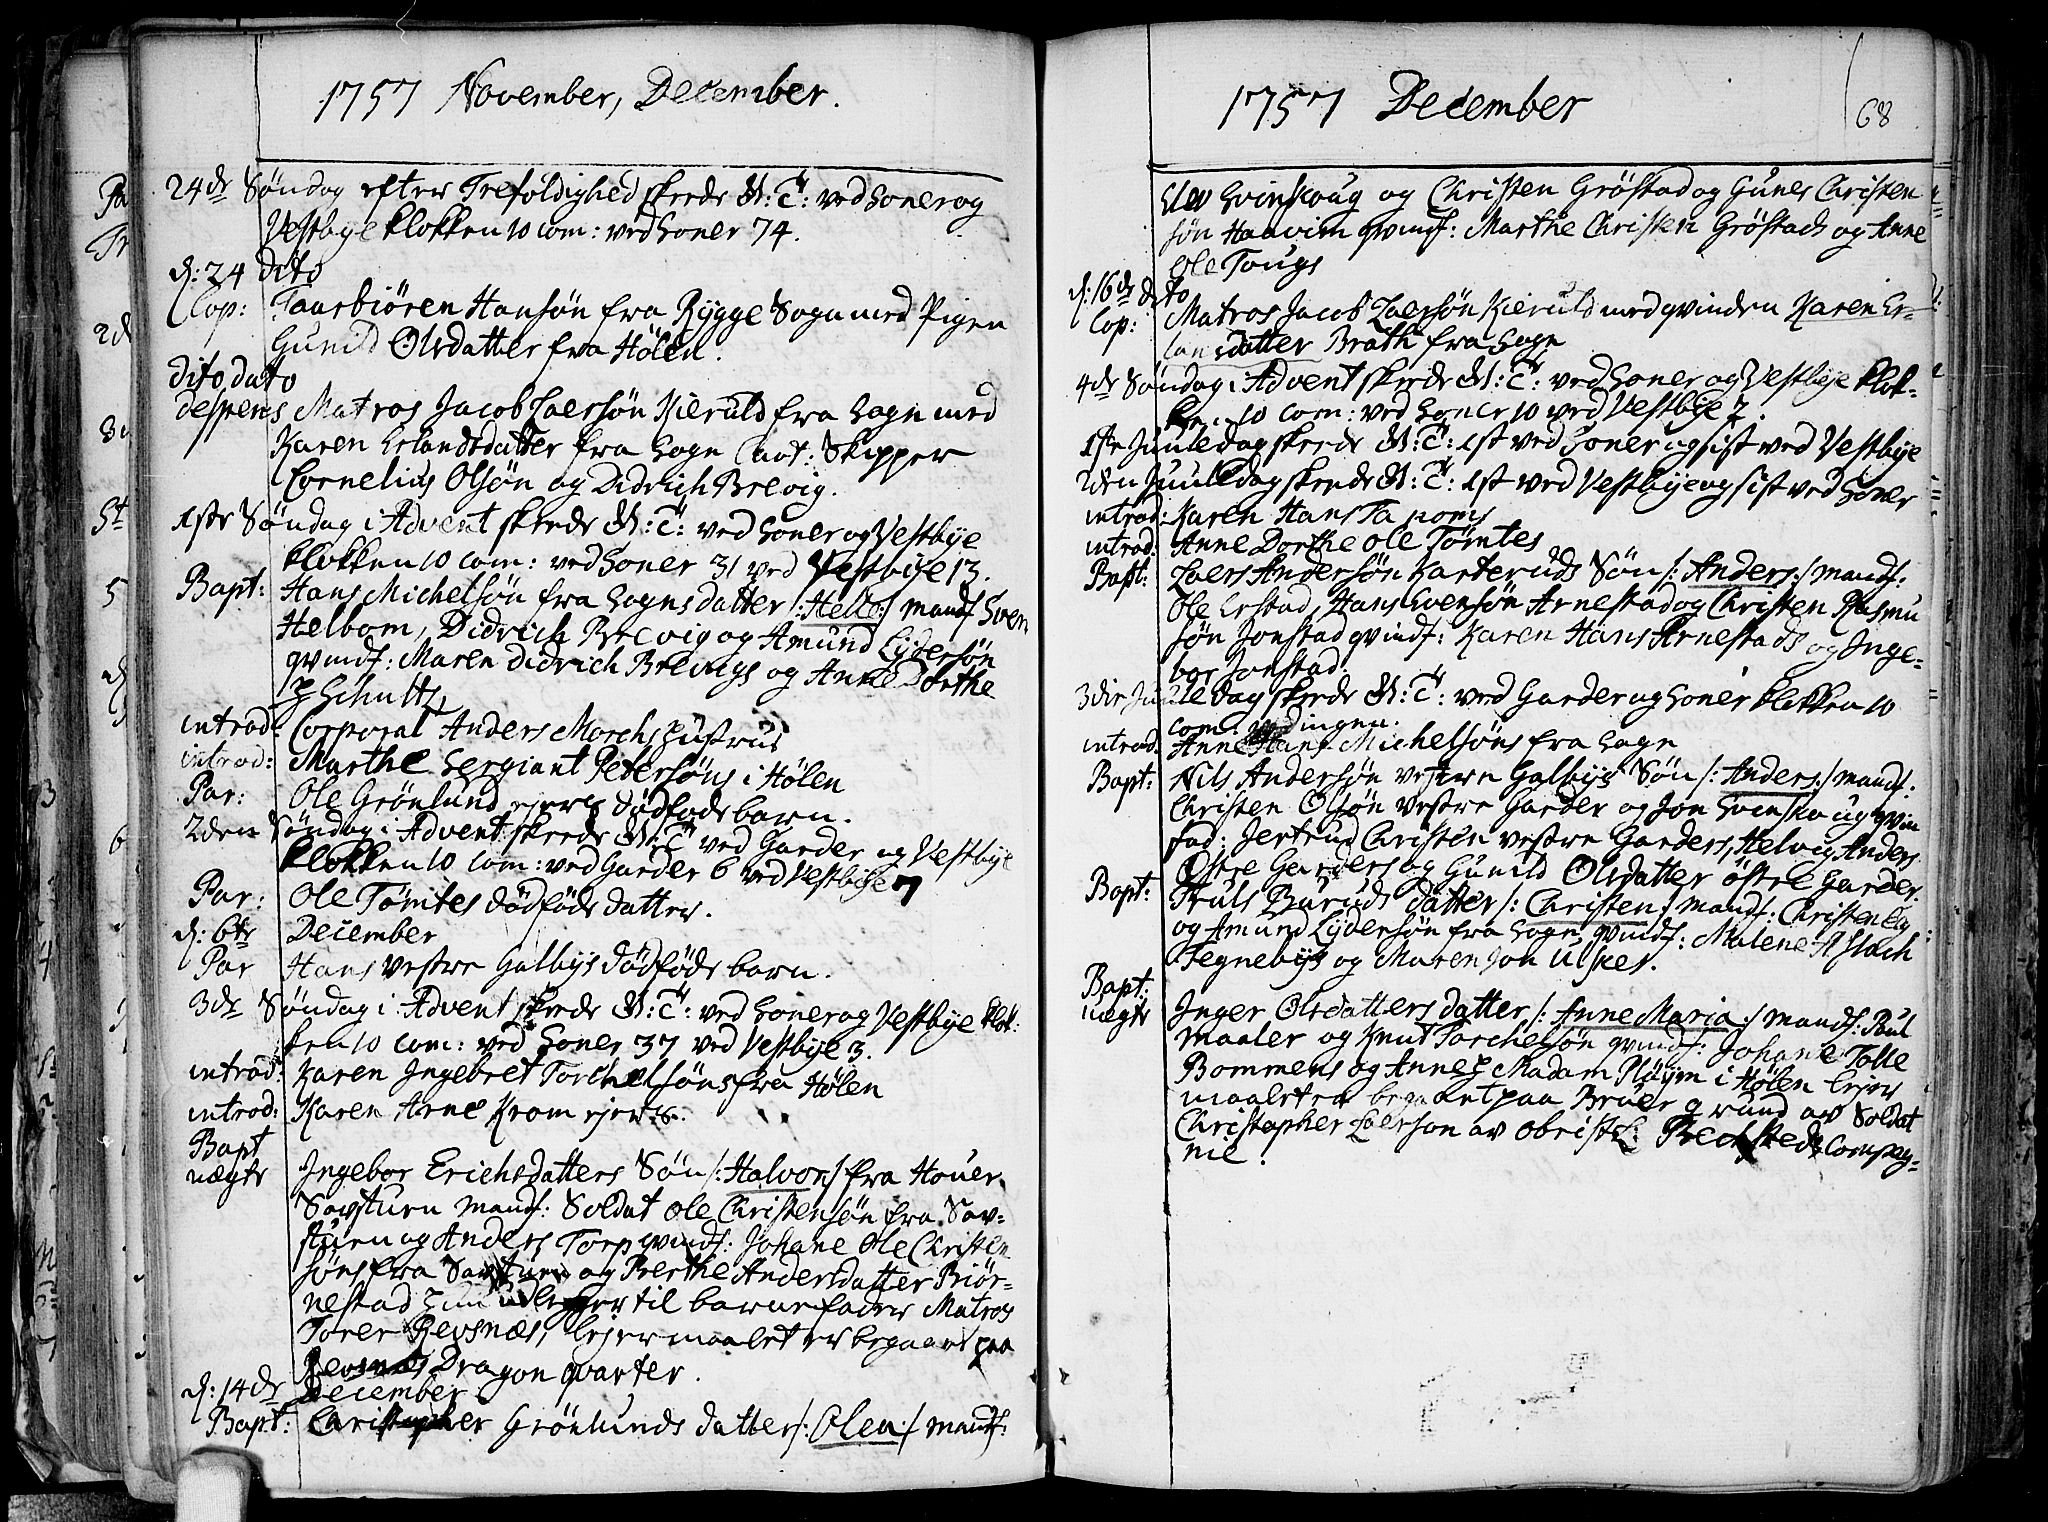 1757 November, December.
24de Søndag efter Trefoldighed skeede G: T: ved Soner og
Vestbye klokken 10 com: ved Soner 74.
d: 24 dito
Cop: Taarbiören Hansøn fra Rygge Sogn med Pigen
Gunild Olsdatter fra Hölen.
dito dato
despens Matros Jacob Laersøn Kieruld fra Sogn med
Karen Erlandsdatter fra Sogn Caut: Skipper
Cornelius Olsøn og Didrich Brevig.
1ste Søndag i Advent skeede G: T: ved Soner og Vestbye
klokken 10 com: ved Soner 31 ved Vestbye 13.
Bapt: Hans Michelsøn fra Sogns datter /: Helle :/ mandf Sven
Helbom, Didrich Brevig og Amund Lydersøn
qvindf: Maren Didrich Brevigs og Anne Dorthe
Schultz,
introd: Corporal Anders Morchs Hustrue
introd: Marthe Sergiant Petersøns i Hölen
Par: Ole Grönlund ejers dødføde barn.
2den Søndag i Advent skeede G: T: ved Garder og Vestbye
klokken 10 com: ved Garder 6 ved Vestbye 7
Par: Ole Tömtes dødføde datter.
d: 6te December
Par Hans vestre Galbys dødføde barn.
3de Søndag i Advent skeede G: T: ved Soner og Vestbye klok:
ken 10 com: ved Soner 37 ved Vestbye 3.
introd: Karen Ingebret Torchelsøns fra Hölen
introd: Karen Arne Krom ejer
Bapt
uægte Ingebor Erichsdatters Søn /: Halvor :/ fra Houer
Savstuen mandf: Soldat Ole Christensøn fra Sav-
stuen og Anders Torp qvindf: Johane Ole Christen
søns fra Savstuen og Berthe Andersdatter Biör-
nestad til barnefader Matros
Torer Revsnæs, lejermaalet er begaaet paa
Dragon qvarter.
d: 14de December
Bapt: Christopher Grönlunds datter /: Olea :/ mandf:
1757 December
68
Elev Svinskoug og Christen Gröstad og Gunes Christen
søn Haavim qvindf: Marthe Christen Gröstads og Anne
Ole Tougs
d: 16de dito
Cop: Matros Jacob Laersøn Kieruld med qvinden Karen Er-
lansdatter Brath fra Sogn
4de Søndag i Advent skeede G: T: ved Soner og Vestbye klok-
ken 10 com: ved Soner 10 ved Vestbye 2.
1ste Juuledag skeede G: T: 1st ved Soner og sist ved Vestbye
2den Juuledag skeede G: T: 1st ved Vestbye og sist ved Soner
introd: Karen Hans
introd: Anne Dorthe Ole Tömtes
Bapt: Laers Andersøn Karteruds Søn /: Anders :/ mandf:
Ole Erstad, Hans Evensøn Arnestad og Christen Rasmu
søn Jonstad qvindf: Karen Hans Arnestads og Inge-
bor Jonstad.
3die Juule Dag skeede G: T: ved Garder og Soner klokken 10
com: ingen.
introd. Anne Hans Michelsøns fra Sogn
Bapt: Nils Andersøn vestre Galbys Søn /: Anders :/ mandf.
Christen Olsøn vestre Garder og Jon Svinskoug qvin
fad: Jertrud Christen vestre Garders, Helvig Anders
Östre Garders og Gunild Olsdatter östre Garder.
Bapt: Truls Buruds datter /: Christen :/ mandf: Christen
og Amund Lydersøn fra Sogn qvindf: Malene Aslach
Tegnebys og Maren Jon Ulskes.
Bapt:
uægte Inger Olsdatters datter /: Anne Maria :/ mandf: Poul
maaler og Knut Torchelsøn qvindf: Johane Tolle
Bommens og Anne Madam Pløym i Hölen lejer
maalet er begaaet paa Bruer grund av Soldat
Christopher Laerson av Obristl: Bechsteds Compag-
nie.